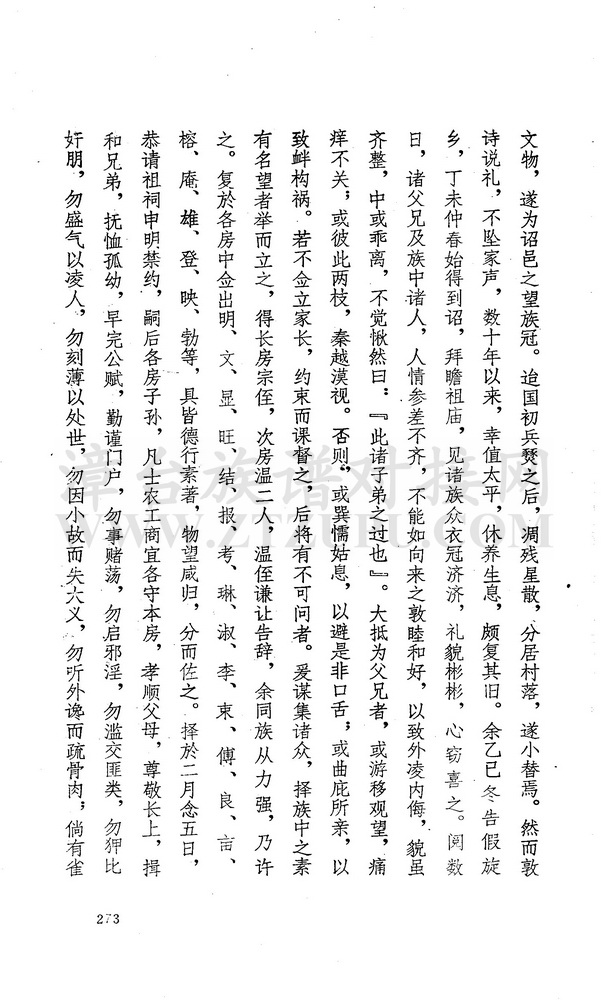 文物，遂为诏邑之望族冠。迨国初兵燹之后，凋残星散，分居村落，遂小替焉。然而敦
诗说礼，不坠家声，数十年以来，幸值太平，休养生息，颇复其旧。余乙巳冬告假旋
乡，丁未仲春始得到诏，拜瞻祖庙，见诸族众衣冠济济，礼貌彬彬，心窃喜之。阅数
日，诸父兄及族中诸人，人情参差不齐，不能如向来之敦睦和好，以致外凌内侮，貌虽
齐整，中或乖离，不觉愀然曰：『此诸子弟之过也』。大抵为父兄者，或游移观望，痛
痒不关；或彼此两枝，秦越漠视。否则，或巽懦姑息，以避是非口舌；或曲庇所亲，以
致衅构祸。若不佥立家长，约束而课督之，后将有不可问者。爰谋集诸众，择族中之素
有名望者举而立之，得长房宗侄，次房温二人，温侄谦让告辞，余同族从力强，乃许
之。复於各房中佥出明、文、显、旺、结、报、考、琳、淑、李、束、傅、良、亩、
榕、庵、雄、登、映、勃等，具皆德行素著，物望咸归，分而佐之。择於二月念五日，
恭请祖祠申明禁约，嗣后各房子孙，凡士农工商宜各守本房，孝顺父母，尊敬长上，揖
和兄弟，抚恤孤幼，早完公赋，勤谨门户，勿事赌荡，勿启邪淫，勿滥交匪类，勿狎比
奸朋，勿盛气以凌人，勿刻薄以处世，勿因小故而失大义，勿听外谗而疏骨肉；倘有雀
273
漳台族谱对接网
WWW.ZTZUPU.COM